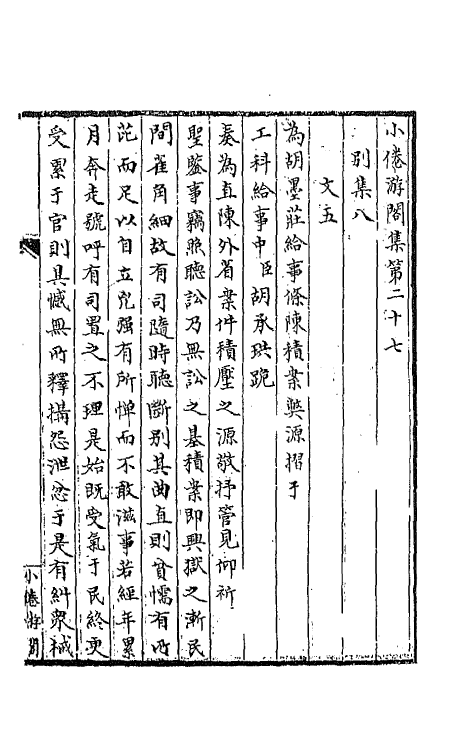 小倦游閣集第二十七
別集八
文五
為胡墨莊給事條陳積案獘源摺子
工科給事中臣胡承珙跪
奏為直陳外省案件積壓之源敬抒管見仰祈
聖鑒事竊照聽訟乃無訟之基積案即興獄之漸民
間雀角細故有司隨時聽斷別其曲直則貧懦有所
芘而足以自立兇强有所憚而不敢滋事若經年累
月奔走號呼有司置之不理是始既受氣于民終更
受累于官則其憾無所釋搆怨泄忿于是有糾眾械
小倦游閣